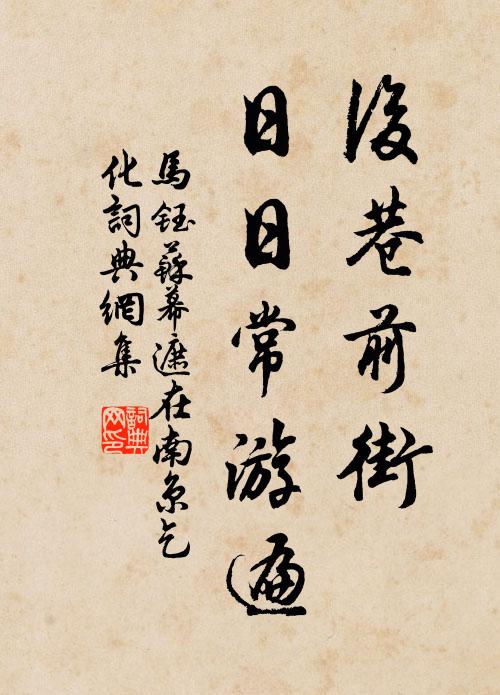 後巷前街
日日常游遍
馬鈺蘇幕遮在南京乞
化詞典網集
詞典網印